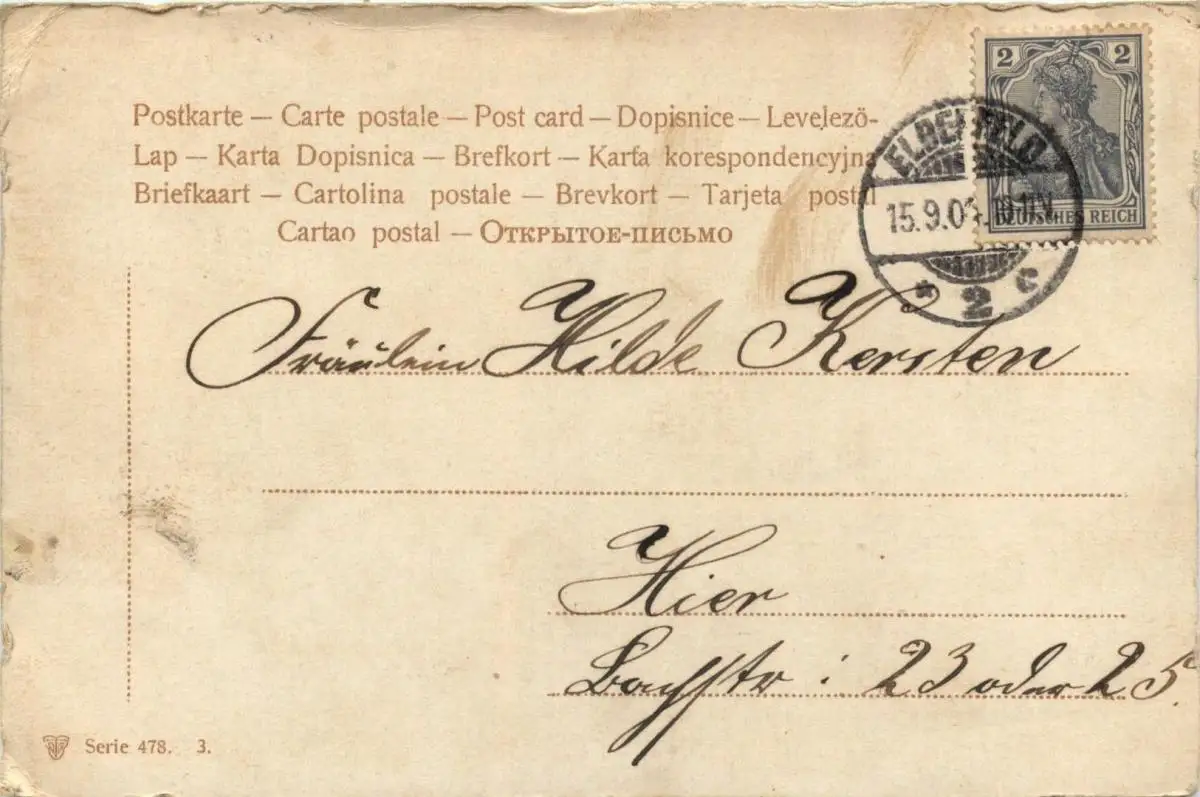 Postkarte — Carte postale — Post card — Dopisnice — Levelező-
Lap — Karta Dopisnica — Brefkort — Karta korespondencyjna
Briefkaart — Cartolina postale — Brevkort — Tarjeta postal
Cartao postal — Открытое-письмо
2 2
DEUTSCHES REICH
ELBERFELD
15.9.0
* 2 c
Fräulein Hilde Kersten
Hier
23 oder 25
Serie 478. 3.